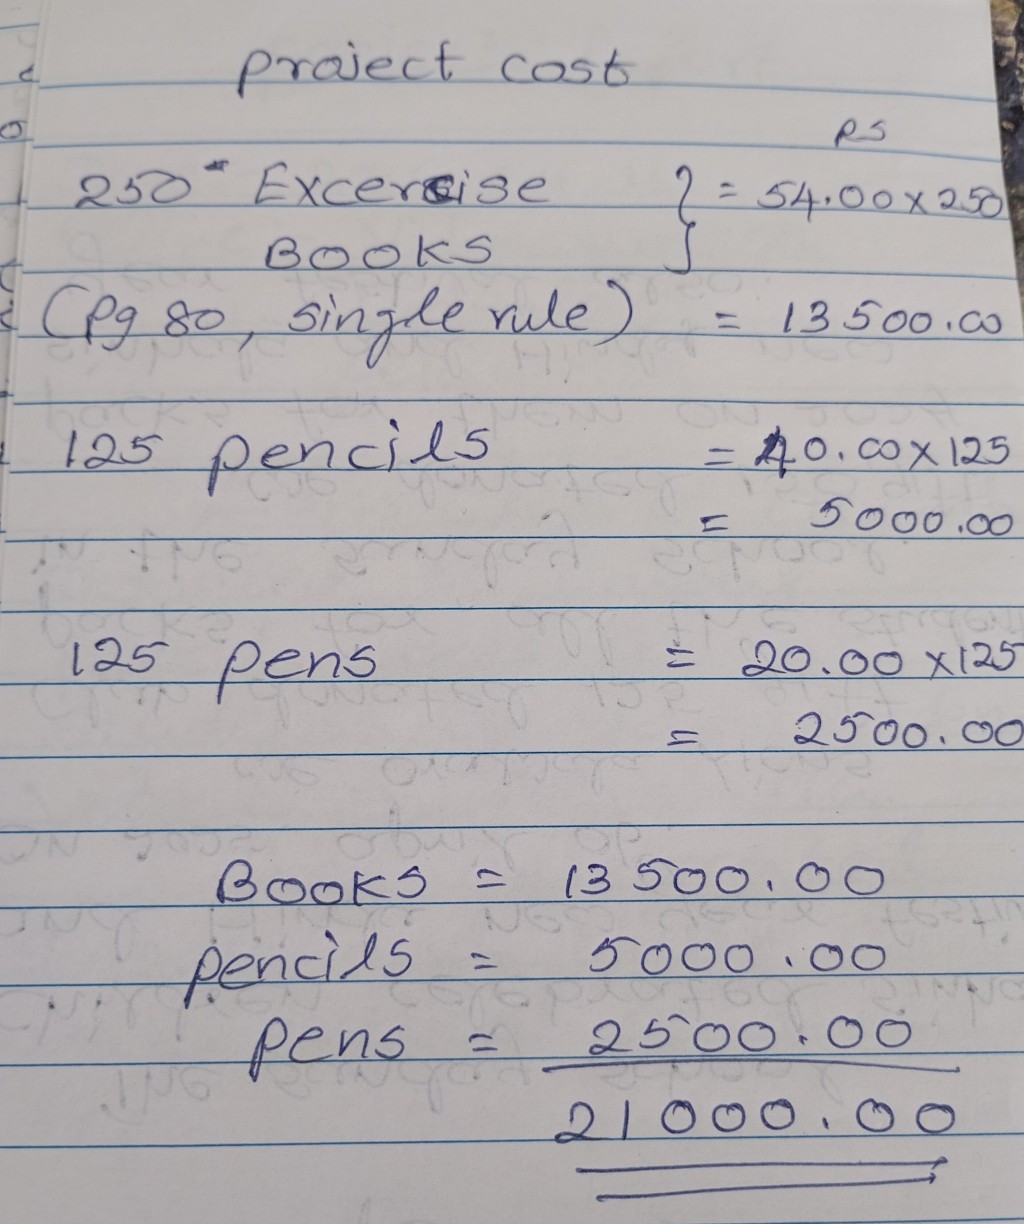 project cost
RS
250 Excercise } = 54.00 x 250
BOOKS
(Pg 80, single rule) = 13500.00
125 pencils = 40.00 x 125
= 5000.00
125 pens = 20.00 x 125
= 2500.00
Books = 13500.00
pencils = 5000.00
pens = 2500.00
21000.00